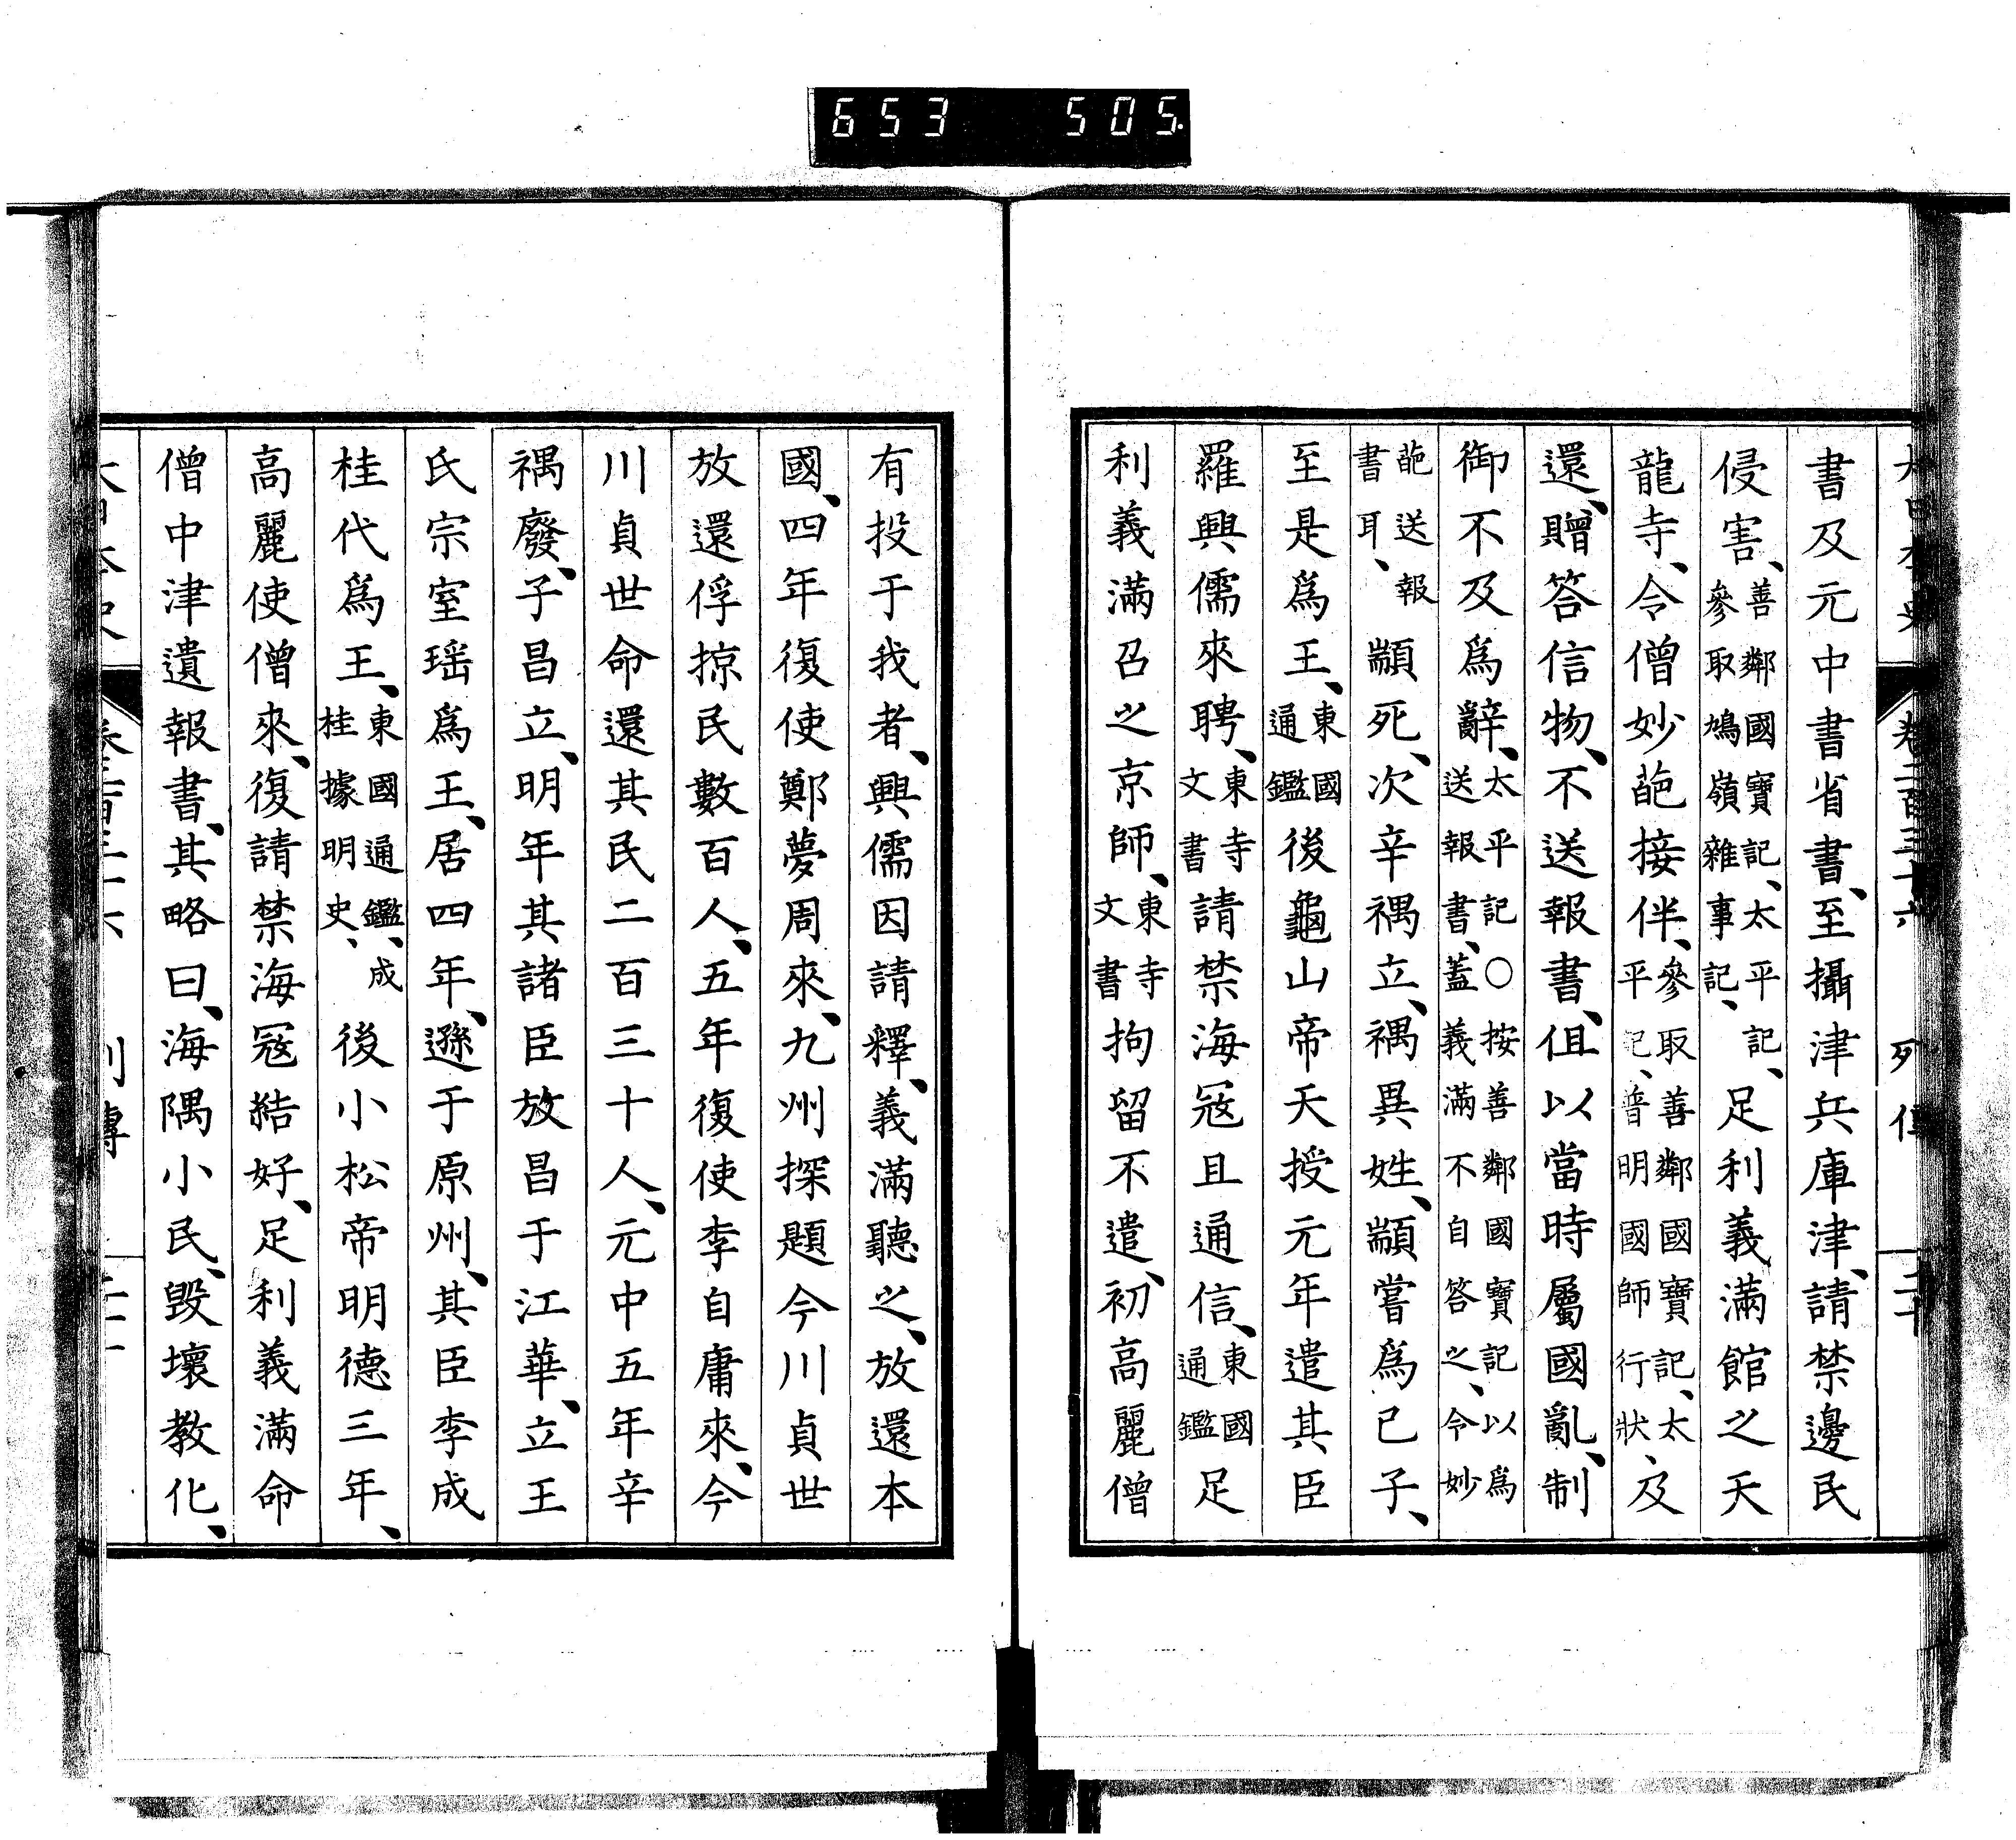 653 505.
書及元中書省書、至攝津兵庫津、請禁邊民
侵害、善鄰國寶記、太平記、參取鳩嶺雜事記、足利義滿館之天
龍寺、令僧妙葩接伴、參取善鄰國寶記、太平記、普明國師行狀、及
還、贈答信物、不送報書、但以當時屬國亂、制
御不及爲辭、太平記〇按善鄰國寶記、以爲送報書、蓋義滿不自答之、令妙
葩送報書耳、顓死、次辛禑立、禑異姓、顓嘗爲己子、
至是爲王、東國通鑑後龜山帝天授元年遣其臣
羅興儒來聘、東寺文書請禁海寇且通信、東國通鑑足
利義滿召之京師、東寺文書拘留不遣、初高麗僧
有投于我者、興儒因請釋、義滿聽之、放還本
國、四年復使鄭夢周來、九州探題今川貞世
放還俘掠民數百人、五年復使李自庸來、今
川貞世命還其民二百三十人、元中五年辛
禑廢、子昌立、明年其諸臣放昌于江華、立王
氏宗室瑶爲王、居四年、遜于原州、其臣李成
桂代爲王、東國通鑑、成桂據明史、後小松帝明德三年、
高麗使僧來、復請禁海寇結好、足利義滿命
僧中津遺報書、其略曰、海隅小民、毀壞教化、